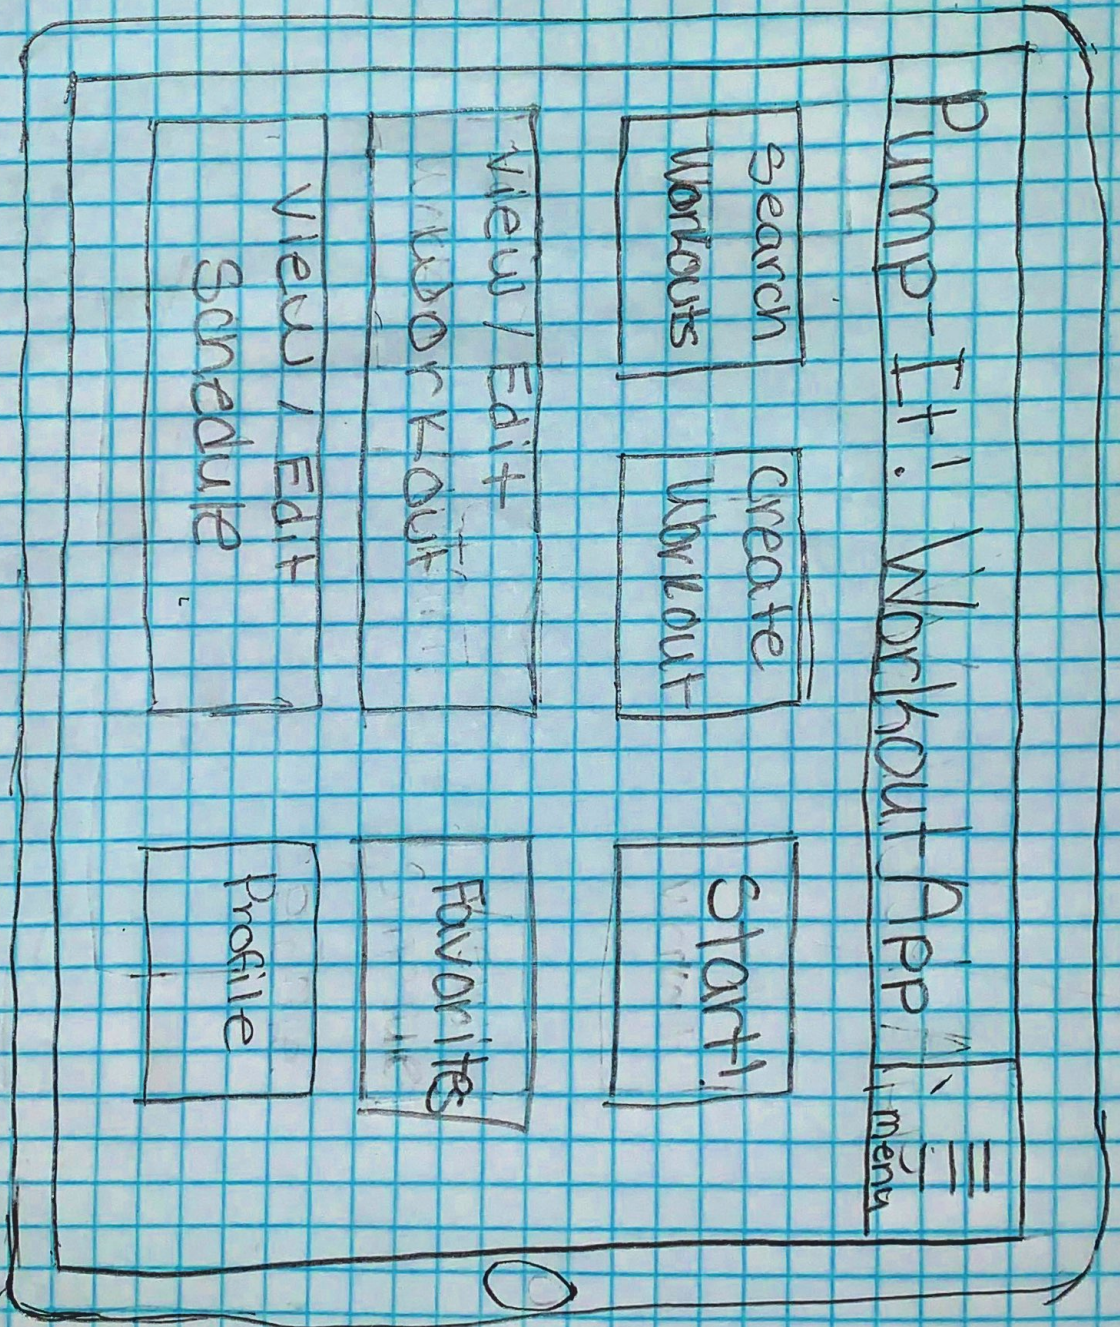 Pump-It! Workout App
menu
Search
Workouts
Create
Workout
Start!
View / Edit
Workout
Favorites
View / Edit
Schedule
Profile